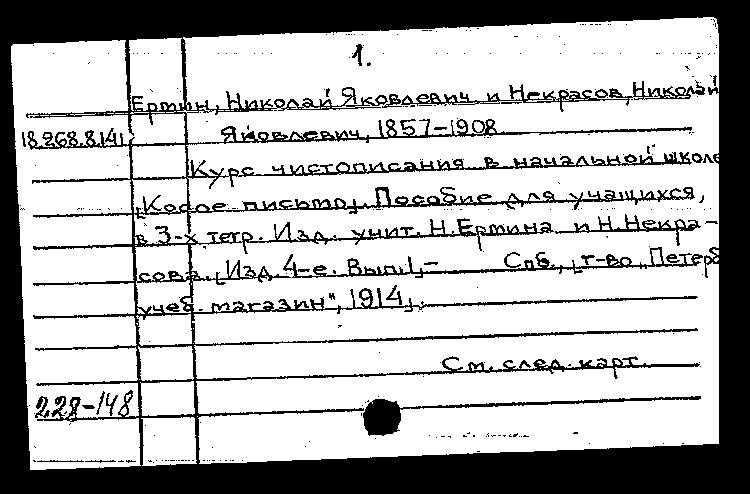 1.
Ермин, Николай Яковлевич и Некрасов, Николай
18.268.8.141; Яковлевич, 1857-1908
Курс чистописания в начальной школе
[Косое письмо]. Пособие для учащихся,
в 3-х тетр. Изд. учит. Н. Ермина и Н. Некра-
сова. [Изд. 4-е. Вып.1,- Спб., [т-во „Петерб
учеб. магазин", 1914].
См. след. карт.
228-148